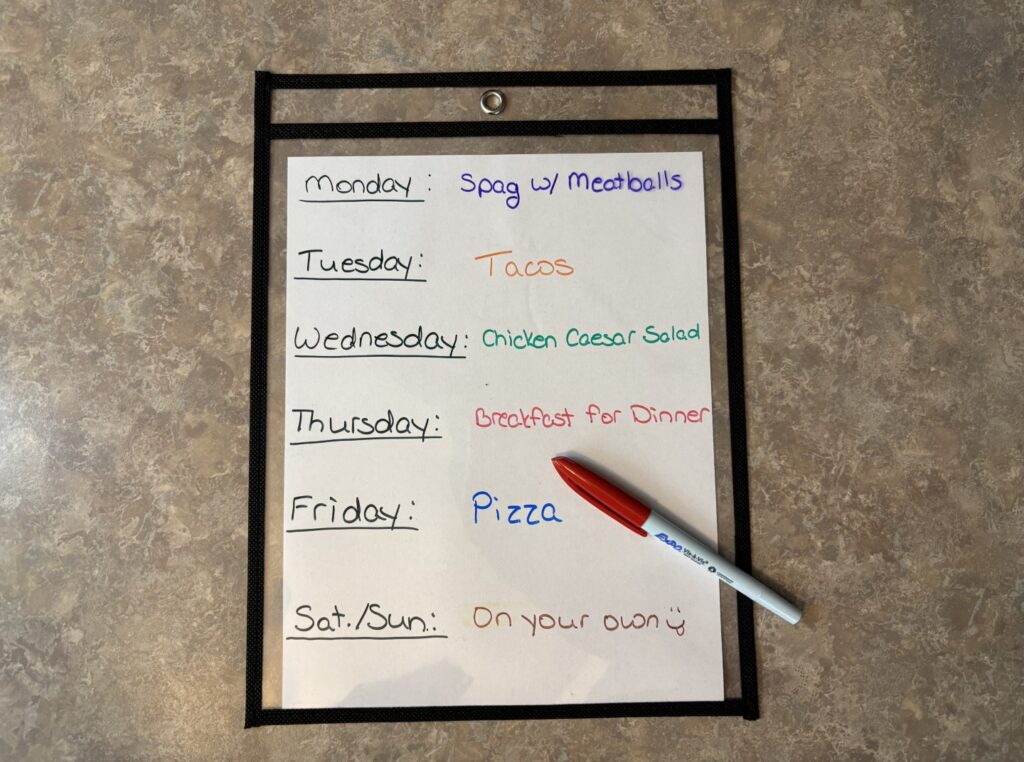 Monday: Spag w/ Meatballs
Tuesday: Tacos
Wednesday: Chicken Caesar Salad
Thursday: Breakfast for Dinner
Friday: Pizza
Sat./Sun.: On your own
EXPO Vis-à-Vis